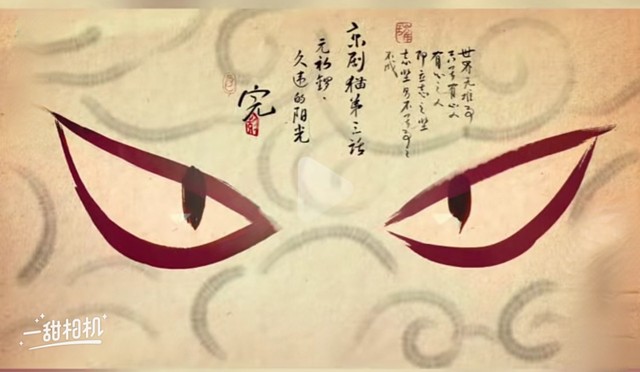 世界无难事
有心人
有心之人
即立志之坚
志坚
不成
京剧猫第三话
元初锣、
久违的阳光
完
一甜相机